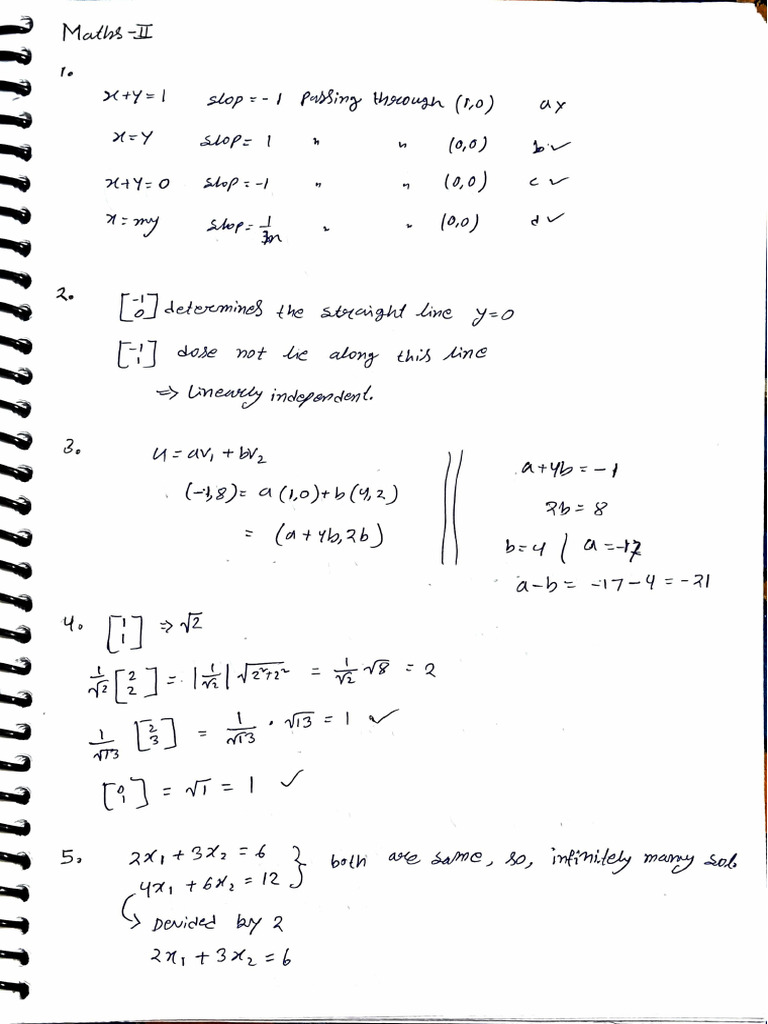 Maths-II
1.
x+y=1 slop=-1 passing through (1,0) a ×
x=y slop= 1 " " (0,0) b ✓
x+y=0 slop=-1 " " (0,0) c ✓
x=my slop=1/m " " (0,0) d ✓
2. [-1 0] determines the straight line y=0
[-1 1] dose not lie along this line
⇒ linearly independent.
3. u = av₁ + bv₂
(-1,8)= a(1,0)+b(4,2)
= (a+4b,2b)
a+4b=-1
2b=8
b=4 / a=-17
a-b= -17-4=-21
4. [1 1] ⇒ √2
1/√2 [2 2] = |1/√2| √2²+2² = 1/√2 √8 = 2
1/√13 [2 3] = 1/√13 · √13 = 1 ✓
[0 1] = √1 = 1 ✓
5. 2x₁ + 3x₂ = 6 } both are same, so, infinitely many sol.
4x₁ + 6x₂ = 12
↳ Devided by 2
2x₁ + 3x₂ = 6